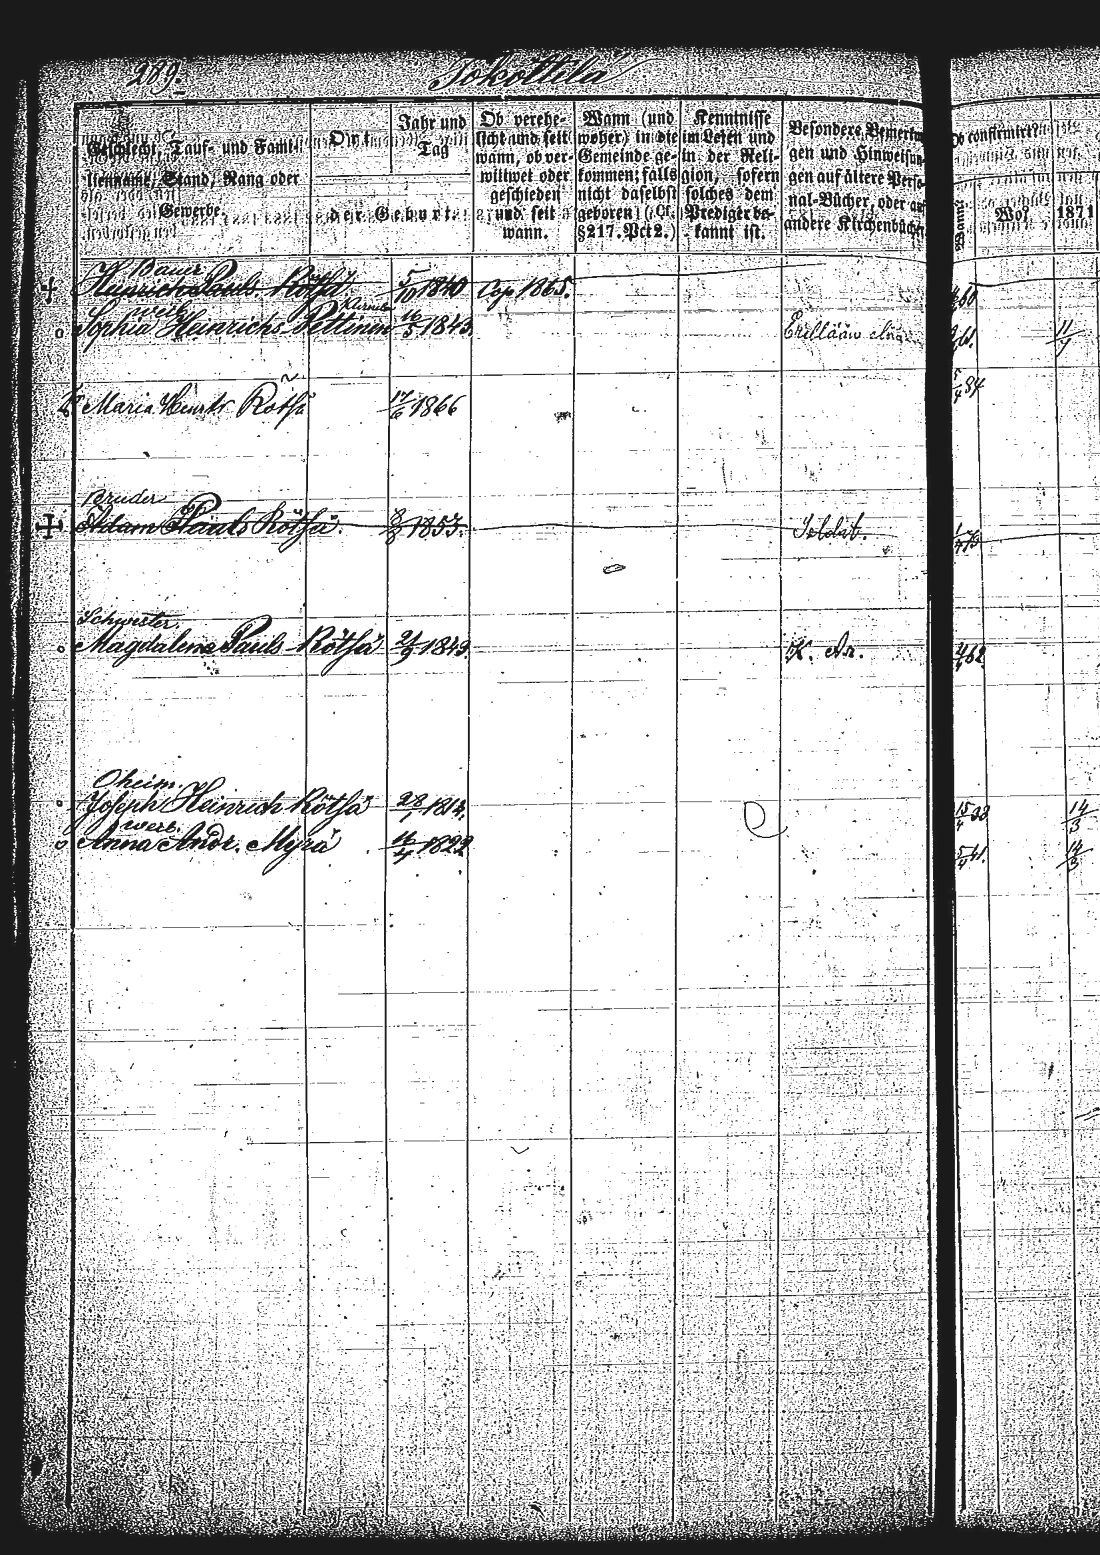 289.
Tokottila
Geschlecht, Tauf- und Fami-
lienname, Stand, Rang oder
Gewerbe.
Ort
Jahr und
Tag
der Geburt.
Ob verehe-
licht und seit
wann, ob ver-
wittwet oder
geschieden
und seit
wann.
Wann (und
woher) in die
Gemeinde ge-
kommen; falls
nicht daselbst
geboren (Cf.
§217. Pct 2.)
Kenntnisse
im Lesen und
in der Reli-
gion, sofern
solches dem
Prediger be-
kannt ist.
Besondere Bemerkun
gen und Hinweisun-
gen auf ältere Perso-
nal-Bücher, oder auf
andere Kirchenbücher
Ob confirmirt?
Wann?
Wo?
1871
Bauer
Heinrich Pauls. Röthä 5/10 1840 Cop 1865.
weib
Sophia Heinrichs Pettinen 16/5 1843. 11/7
Maria Henriks Rothä 17/6 1866 5/4 84
Bruder
Adam Pauls Röthä. 8/8 1853. Soldat.
Schwester.
Magdalena Pauls Röthä 21/9 1849. K. An. 62
Oheim.
Joseph Heinrich Röthä 28/1 1814. 15/4 33 14/3
weib.
Anna Andr. Myrä 4/4 1822. 5/4 41. 14/3